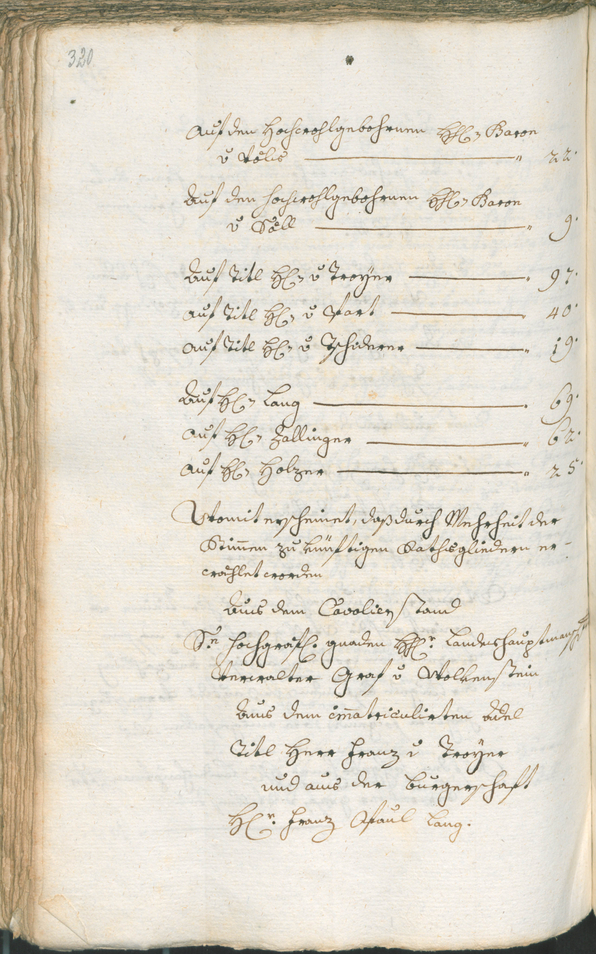 320
Auf den Hochwohlgebohrnen H(errn) Baron
v Völs — 22.
Auf den hochwohlgebohrnen H(errn) Baron
v Söll — 9.
Auf Titl H(errn) v Troyer — 97.
Auf Titl H(errn) v Hart — 40.
Auf Titl H(errn) v Tschiderer — 19.
Auf H(errn) Lang — 69.
Auf H(errn) Zallinger — 62.
Auf H(errn) Holzer — 25.
Womit erscheinet, daß durch Mehrheit der
Stimmen zu künftigen Rathsgliedern er-
wählet worden
Aus dem Cavalierstand
Se hochgräfl. gnaden H(err) Landeshauptmanschafts
Verwalter Graf v Wolkenstein
Aus dem im̄atriculirten Adel
Titl Herr Franz v Troyer
und aus der burgerschaft
H(err) Franz Paul Lang.